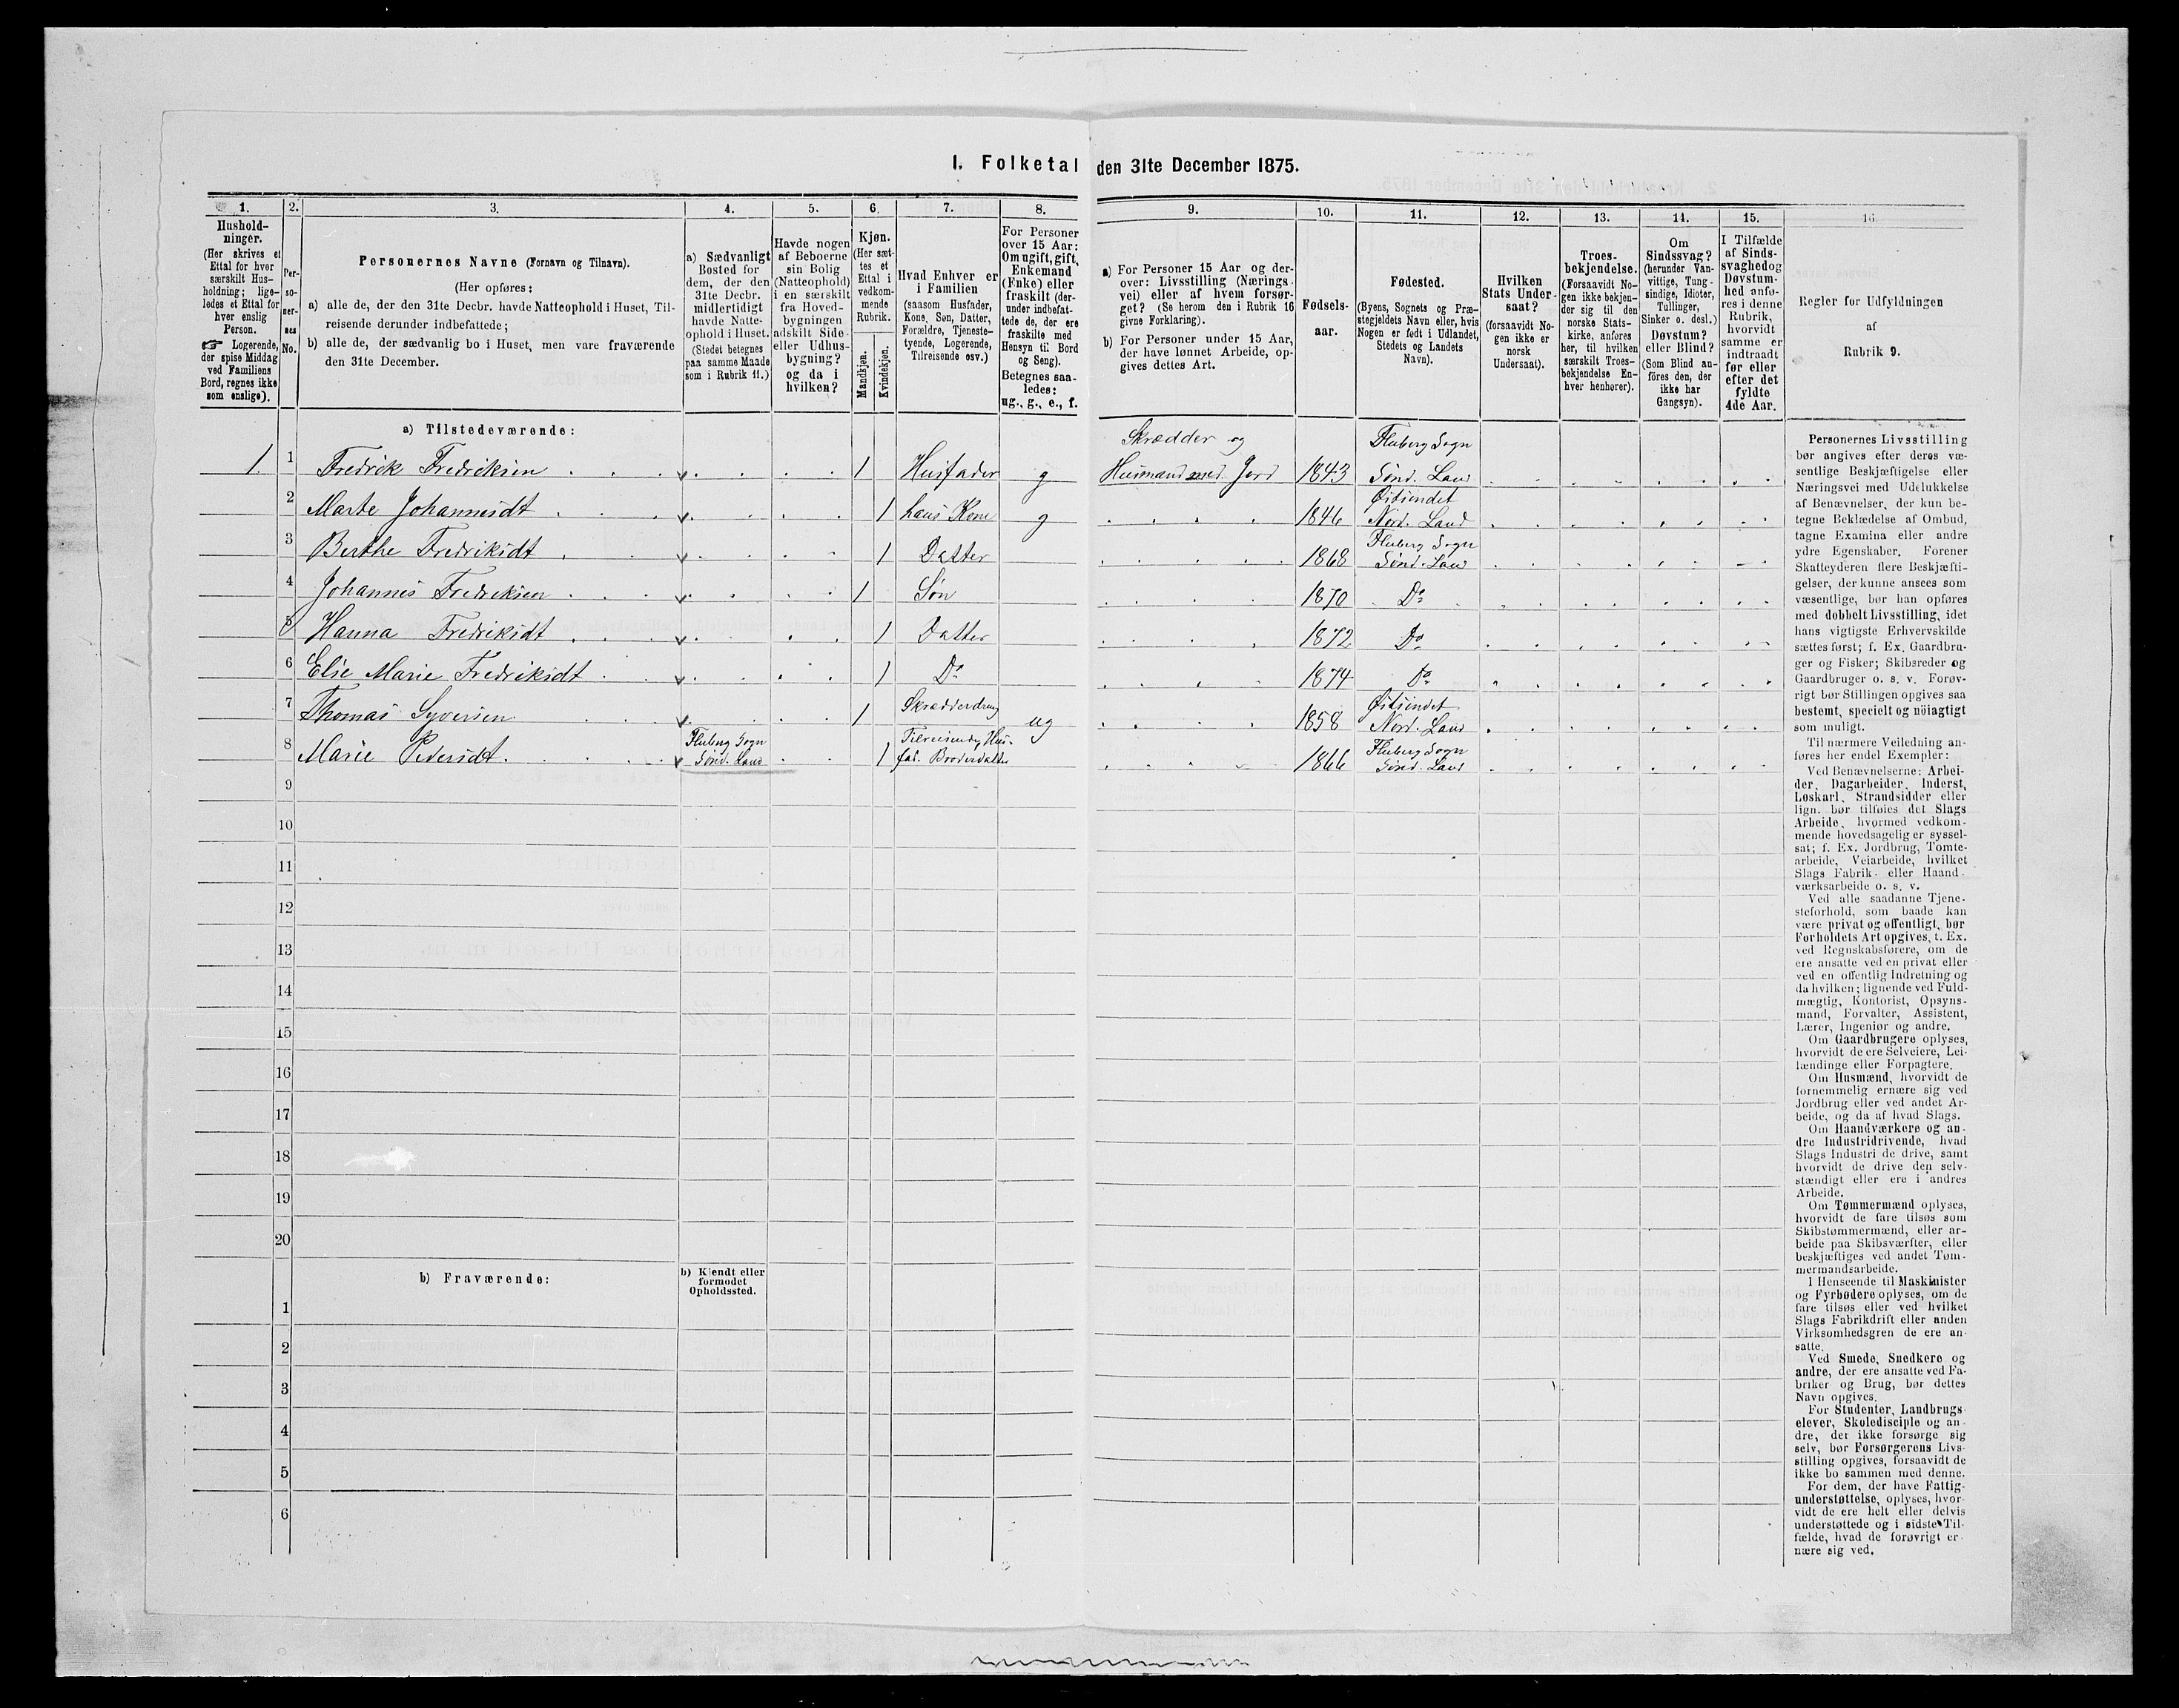 I. Folketal den 31te December 1875.
1.
Hushold-
ninger.
(Her skrives et
Ettal for hver
særskilt Hus-
holdning; lige-
ledes et Ettal for
hver enslig
Person.
☞ Logerende,
der spise Middag
ved Familiens
Bord, regnes ikke
som enslige).
2.
Per-
so-
ner-
nes
No.
3.
Personernes Navne (Fornavn og Tilnavn).
(Her opføres:
a) alle de, der den 31te Decbr. havde Natteophold i Huset, Til-
reisende derunder indbefattede;
b) alle de, der sædvanlig bo i Huset, men vare fraværende
den 31te December.
4.
a) Sædvanligt
Bosted for
dem, der den
31te Decbr.
midlertidigt
havde Natte-
ophold i Huset.
(Stedet betegnes
paa samme Maade
som i Rubrik 11.)
5.
Havde nogen
af Beboerne
sin Bolig
(Natteophold)
i en særskilt
fra Hoved-
bygningen
adskilt Side-
eller Udhus-
bygning?
og da i
hvilken?
6.
Kjøn.
(Her sæt-
tes et
Ettal i
vedkom-
mende
Rubrik.
Mandkjøn.
Kvindekjøn.
7.
Hvad Enhver er
i Familien
(saasom Husfader,
Kone, Søn, Datter,
Forældre, Tjeneste-
tyende, Logerende,
Tilreisende osv.)
8.
For Personer
over 15 Aar:
Om ugift, gift,
Enkemand
(Enke) eller
fraskilt (der-
under indbefat-
tede de, der ere
fraskilte med
Hensyn til Bord
og Seng).
Betegnes saa-
ledes:
ug., g., e., f.
9.
a) For Personer 15 Aar og der-
over: Livsstilling (Nærings-
vei) eller af hvem forsør-
get? (Se herom den i Rubrik 16
givne Forklaring).
b) For Personer under 15 Aar,
der have lønnet Arbeide, op-
gives dettes Art.
10.
Fødsels-
aar.
11.
Fødested.
(Byens, Sognets og Præ-
stegjeldets Navn eller, hvis
Nogen er født i Udlandet,
Stedets og Landets
Navn).
12.
Hvilken
Stats Under-
saat?
(forsaavidt No-
gen ikke er
norsk
Undersaat).
13.
Troes-
bekjendelse.
(Forsaavidt No-
gen ikke bekjen-
der sig til den
norske Stats-
kirke, anføres
her, til hvilken
særskilt Troes-
bekjendelse En-
hver henhører).
14.
Om
Sindssvag?
(herunder Van-
vittige, Tung-
sindige, Idioter,
Tullinger,
Sinker o. desl.)
Døvstum?
eller Blind?
(Som Blind an-
føres den, der
ikke har
Gangsyn).
15.
I Tilfælde
af Sinds-
svaghed og
Døvstum-
hed anfø-
res i denne
Rubrik,
hvorvidt
samme er
indtraadt
før eller
efter det
fyldte
4de Aar.
16.
Regler for Udfyldningen
af
Rubrik 9.
a) Tilstedeværende:
Skrædder og Fluberg Sogn
1. 1 Fredrik Fredriksen v 1 Husfader g Husmand med Jord 1843 Sønd. Land
Østsindet
2 Marte Johannesdt v 1 hans Kone g 1846 Nord. Land
Fluberg Sogn
3 Berthe Fredriksdt v 1 Datter 1868 Sønd. Land
4 Johannes Fredriksen v 1 Søn 1870 Do
5 Hanna Fredriksdt v 1 Datter 1872 Do
6 Elise Marie Fredriksdt v 1 Do 1874 Do
Østsindet
7 Thomas Syversen v 1 Skrædderdreng ug 1858 Nord. Land
Fluberg Sogn Tilreisende, Hus- Fluberg Sogn
8 Marie Pedersdt. v Sønd. Land 1 fad. Broderdatter 1866 Sønd. Land
9
10
11
12
13
14
15
16
17
18
19
20
b) Fraværende:
b) Kjendt eller
formodet
Opholdssted.
1
2
3
4
5
6
Personernes Livsstilling
bør angives efter deres væ-
sentlige Beskjæftigelse eller
Næringsvei med Udelukkelse
af Benævnelser, der kun be-
tegne Beklædelse af Ombud,
tagne Examina eller andre
ydre Egenskaber. Forener
Skatteyderen flere Beskjæfti-
gelser, der kunne ansees som
væsentlige, bør han opføres
med dobbelt Livsstilling, idet
hans vigtigste Erhvervskilde
sættes først; f. Ex. Gaardbru-
ger og Fisker; Skibsreder og
Gaardbruger o. s. v. Forøv-
rigt bør Stillingen opgives saa
bestemt, specielt og nöiagtigt
som muligt.
Til nærmere Veiledning an-
føres her endel Exempler:
Ved Benævnelserne: Arbei-
der, Dagarbeider, Inderst,
Løskarl, Strandsidder eller
lign. bør tilføies det Slags
Arbeide, hvormed vedkom-
mende hovedsagelig er syssel-
sat; f. Ex. Jordbrug, Tomte-
arbeide, Veiarbeide, hvilket
Slags Fabrik- eller Haand-
værksarbeide o. s. v.
Ved alle saadanne Tjene-
steforhold, som baade kan
være privat og offentligt, bør
Forholdets Art opgives, t. Ex.
ved Regnskabsførere, om de
ere ansatte ved en privat eller
ved en offentlig Indretning og
da hvilken; lignende ved Fuld-
mægtig, Kontorist, Opsyns-
mand, Forvalter, Assistent,
Lærer, Ingeniør og andre.
Om Gaardbrugere oplyses,
hvorvidt de ere Selveiere, Lei-
lændinge eller Forpagtere.
Om Husmænd, hvorvidt de
fornemmelig ernære sig ved
Jordbrug eller ved andet Ar-
beide, og da af hvad Slags.
Om Haandværkere og an-
dre Industridrivende, hvad
Slags Industri de drive, samt
hvorvidt de drive den selv-
stændigt eller ere i andres
Arbeide.
Om Tømmermænd oplyses,
hvorvidt de fare tilsøs som
Skibstømmermænd, eller ar-
beide paa Skibsværfter, eller
beskjæftiges ved andet Tøm-
mermandsarbeide.
I Henseende til Maskinister
og Fyrbødere oplyses, om de
fare tilsøs eller ved hvilket
Slags Fabrikdrift eller anden
Virksomhedsgren de ere an-
satte.
Ved Smede, Snedkere og
andre, der ere ansatte ved Fa-
briker og Brug, bør dettes
Navn opgives.
For Studenter, Landbrugs-
elever, Skoledisciple og an-
dre, der ikke forsørge sig
selv, bør Forsørgerens Livs-
stilling opgives, forsaavidt de
ikke bo sammen med denne.
For dem, der have Fattig-
understøttelse, oplyses, hvor-
vidt de ere helt eller delvis
understøttede og i sidste Til-
fælde, hvad de forøvrigt er-
nære sig ved.